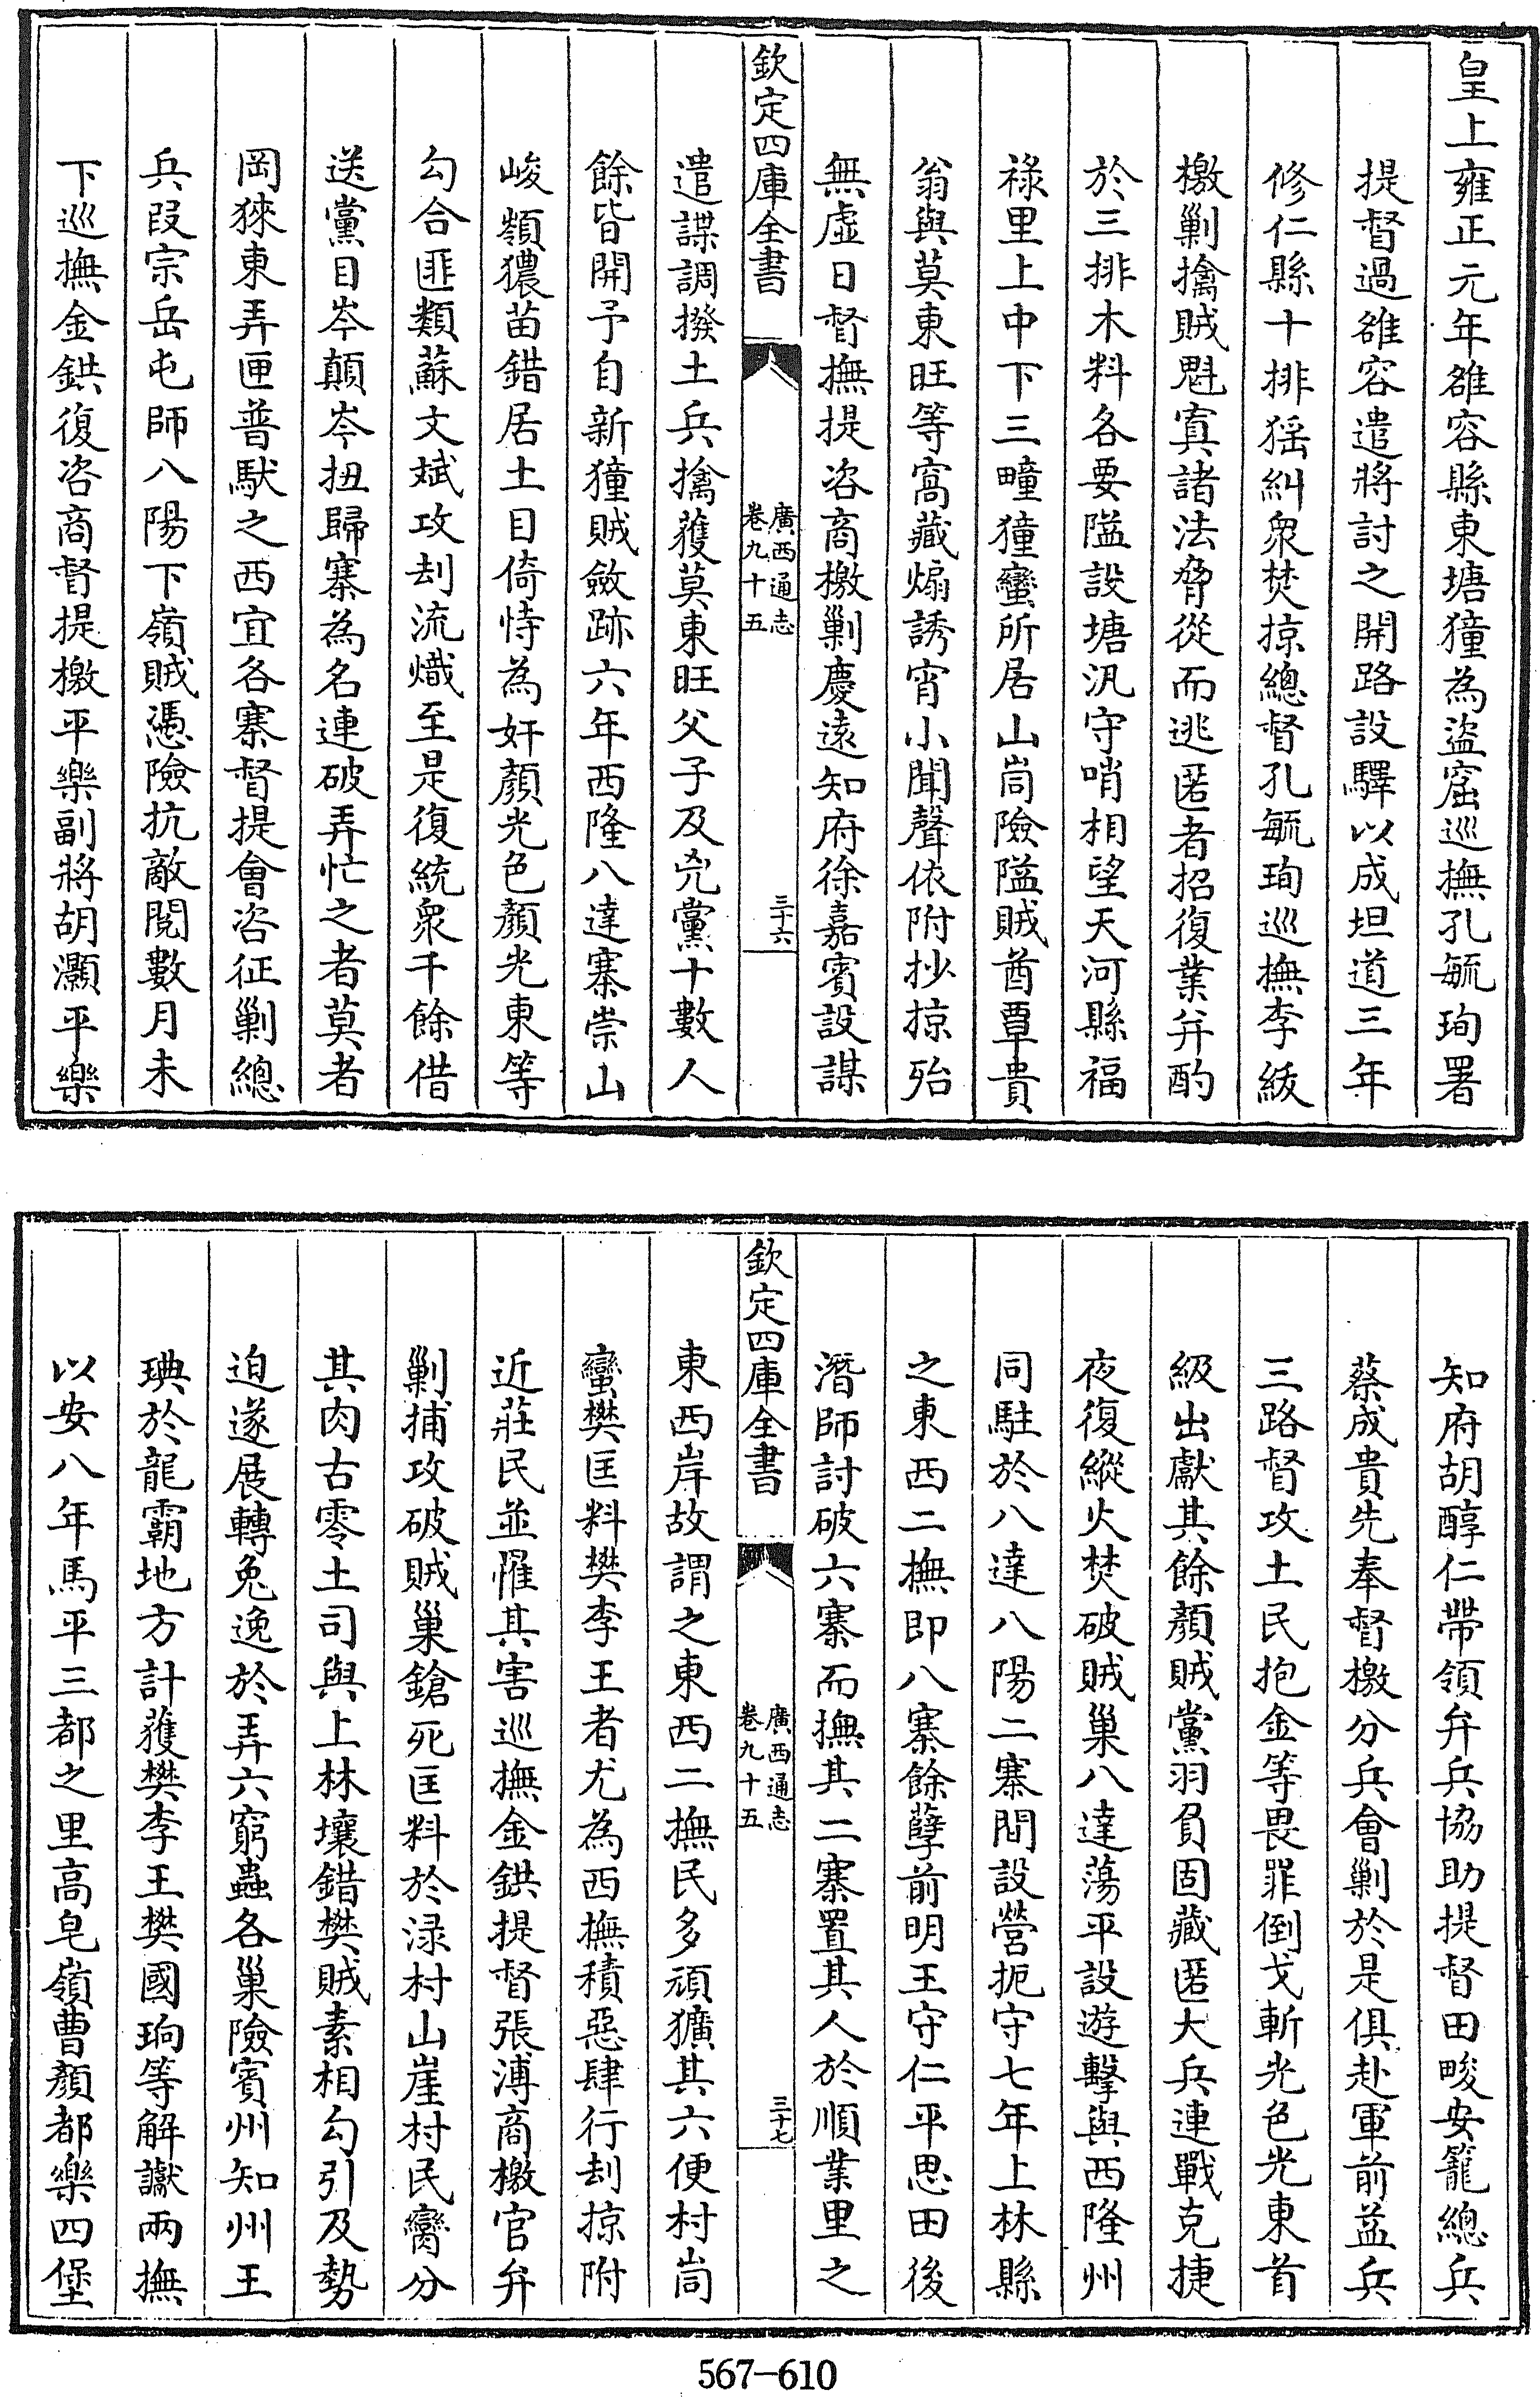 皇上雍正元年雒容縣東塘獞為盜窟巡撫孔毓珣署
提督過雒容遣將討之開路設驛以成坦道三年
修仁縣十排猺糾衆焚掠總督孔毓珣巡撫李紱
檄剿擒賊魁寘諸法脅從而逃匿者招復業并酌
於三排木料各要隘設塘汛守哨相望天河縣福
祿里上中下三疃獞蠻所居山峝險隘賊酋覃貴
翁與莫東旺等窩藏煽誘宵小聞聲依附抄掠殆
無虛日督撫提咨商檄剿慶遠知府徐嘉賓設謀
欽定四庫全書
廣西通志
卷九十五
三十六
遣諜調撥土兵擒獲莫東旺父子及兇黨十數人
餘皆開予自新獞賊斂跡六年西隆八達寨崇山
峻嶺獽苗錯居土目倚恃為奸顏光色顏光東等
勾合匪類蘇文斌攻刦流熾至是復統衆千餘借
送黨目岑顛岑扭歸寨為名連破弄忙之者莫者
岡猍東弄匣普馱之西宜各寨督提會咨征剿總
兵段宗岳屯師八陽下嶺賊憑險抗敵閱數月未
下巡撫金鉷復咨商督提檄平樂副將胡灝平樂
知府胡醇仁帶領弁兵協助提督田畯安籠總兵
蔡成貴先奉督檄分兵會剿於是俱赴軍前益兵
三路督攻土民抱金等畏罪倒戈斬光色光東首
級出獻其餘顏賊黨羽負固藏匿大兵連戰克捷
夜復縱火焚破賊巢八達蕩平設遊擊與西隆州
同駐於八達八陽二寨間設營扼守七年上林縣
之東西二撫即八寨餘孽前明王守仁平思田後
潛師討破六寨而撫其二寨置其人於順業里之
欽定四庫全書
廣西通志
卷九十五
三十七
東西岸故謂之東西二撫民多頑獷其六便村峝
蠻樊匡料樊李王者尤為西撫積惡肆行刦掠附
近莊民並罹其害巡撫金鉷提督張溥商檄官弁
剿捕攻破賊巢鎗死匡料於渌村山崖村民臠分
其肉古零土司與上林壤錯樊賊素相勾引及勢
迫遂展轉兔逸於弄六窮蟲各巢險賓州知州王
琠於龍霸地方計獲樊李王樊國珦等解讞兩撫
以安八年馬平三都之里高皂嶺曹顏都樂四堡
567-610